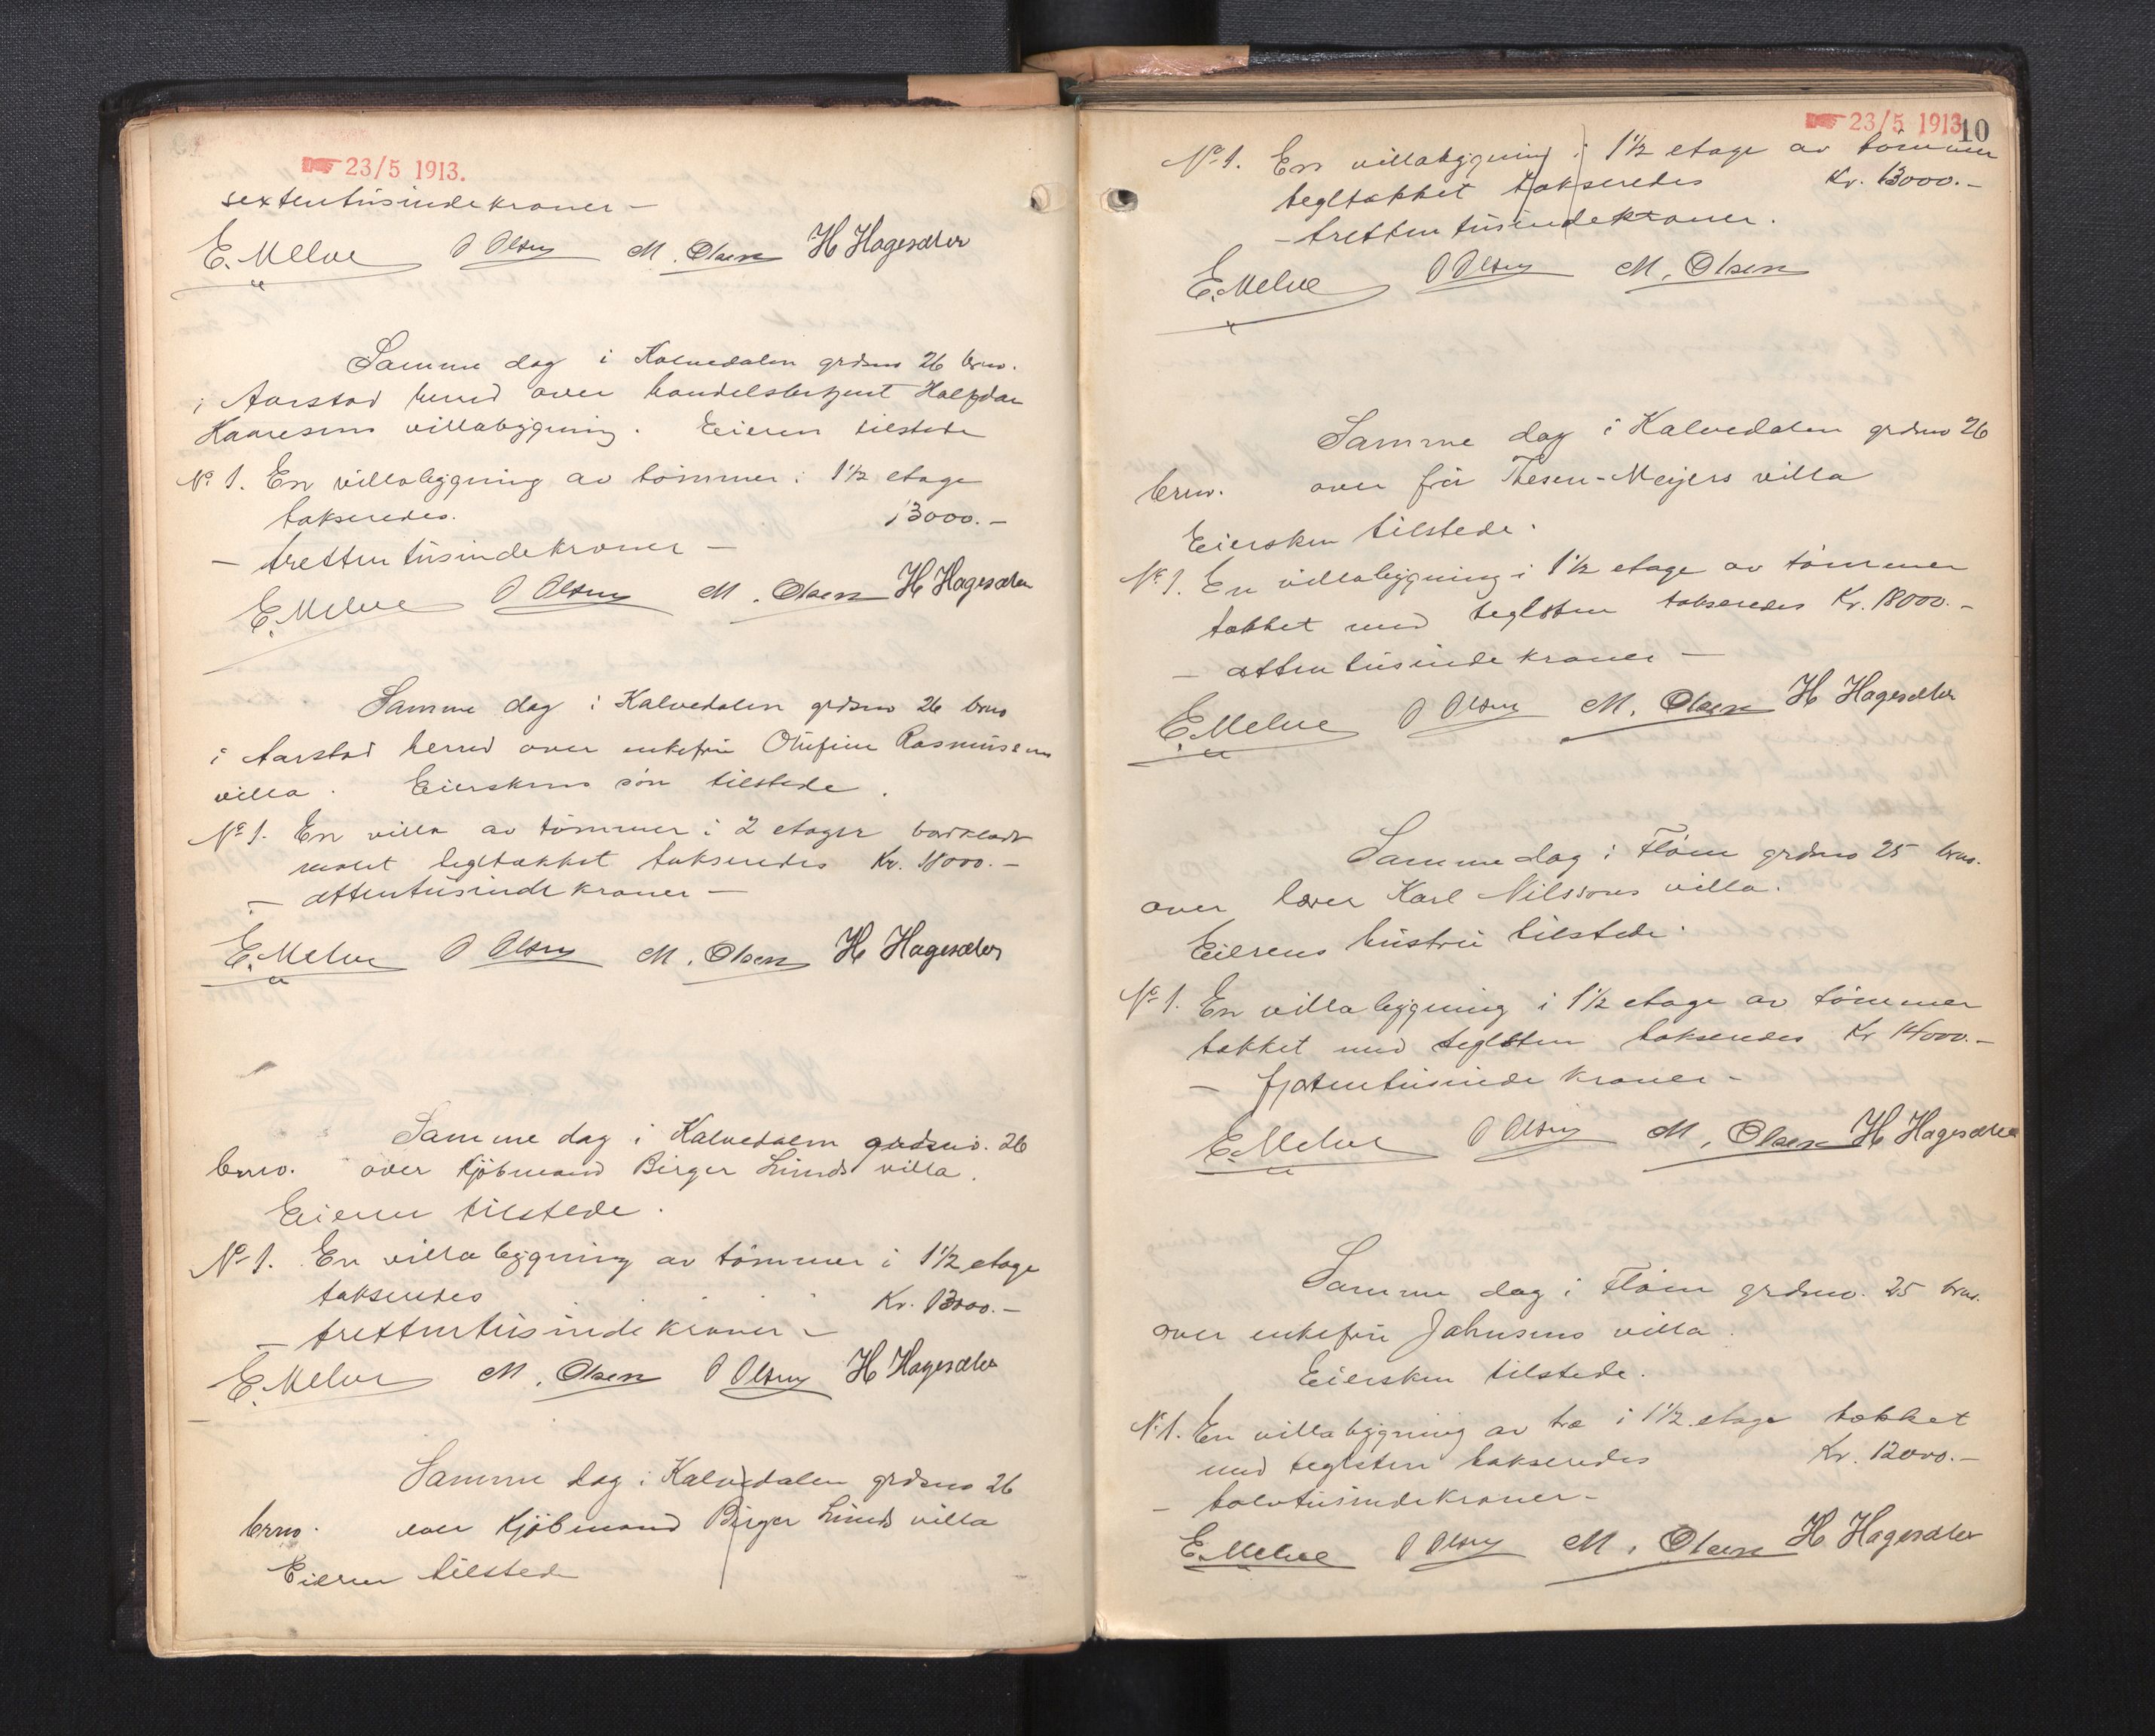 23/5 1913.
sextentusindekroner —
E. Melve O Olsen M. Olsen H Hagesæter
Samme dag i Kalvedalen grdsno 26 brno.
i Aarstad herred over handelsbetjent Halfdan
Kaaresens villabygning. Eieren tilstede
No 1. En villabygning av tömmer i 1 1/2 etage
takseredes. 13000.-
— trettentusindekroner —
E. Melve O Olsen M. Olsen H Hagesæter
Samme dag i Kalvedalen grdsno 26 brno
i Aarstad herred over enkefru Olufine Rasmussens
villa. Eierskens sön tilstede.
No 1. En villa av tömmer i 2 etager bordklædt
malet tegltækket takseredes Kr. 18000.-
— attentusindekroner —
E. Melve O Olsen M. Olsen H Hagesæter
Samme dag i Kalvedalen grdsno. 26
brno. over Kjöbmand Birger Lunds villa.
Eieren tilstede.
No 1. En villabygning av tömmer i 1 1/2 etage
takseredes Kr. 13000.-
— trettentusindekroner —
E. Melve M. Olsen O Olsen H Hagesæter
Samme dag i Kalvedalen grdsno 26
brno. over Kjöbmand Birger Lunds villa
Eieren tilstede
23/5 1913
10
No 1. En villabygning i 1 1/2 etage av tömmer
tegltækket takseredes Kr. 13000.-
— trettentusindekroner.
E. Melve O Olsen M. Olsen
Samme dag i Kalvedalen grdsno 26
brno. over fru Thesen-Meyers villa
Eiersken tilstede.
No 1. En villabygning i 1 1/2 etage av tömmer
tækket med teglsten takseredes Kr. 18000.-
— attentusinde kroner —
E. Melve O Olsen M. Olsen H Hagesæter
Samme dag i Flöen grdsno 25 brno.
over lærer Karl Nilssons villa.
Eierens hustru tilstede.
No 1. En villabygning i 1 1/2 etage av tömmer
tækket med teglsten takseredes Kr 14000.-
— fjortentusinde kroner -
E. Melve O Olsen M. Olsen H Hagesæter
Samme dag i Flöen grdsno. 25 brno.
over enkefru Jahnsens villa.
Eiersken tilstede.
No 1. En villabygning av træ i 1 1/2 etage tækket
med teglsten takseredes Kr. 12000.-
— tolvtusindekroner-
E. Melve O Olsen M. Olsen H Hagesæter